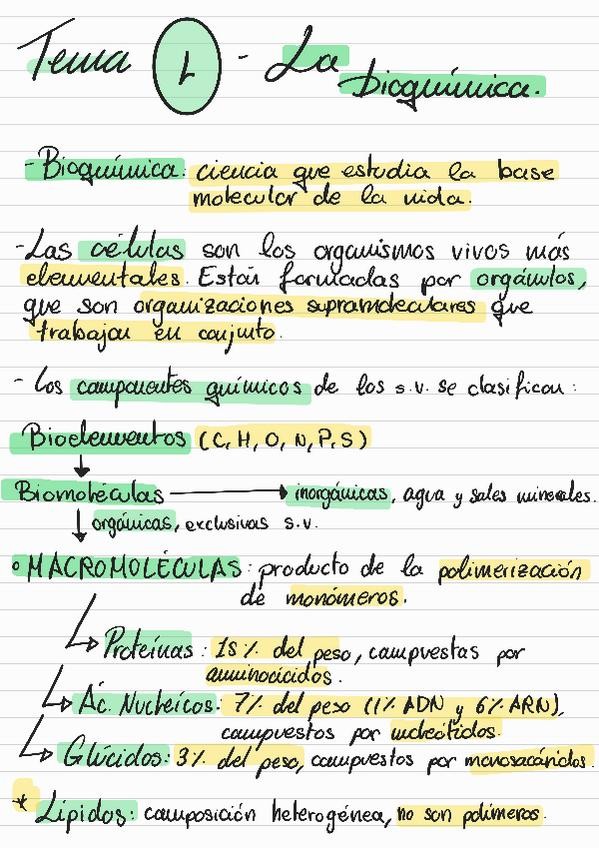 Tema 1 - La
bioquímica.
- Bioquímica: ciencia que estudia la base
molecular de la vida.
- Las células son los organismos vivos más
elementales. Están formadas por orgánulos,
que son organizaciones supramoleculares que
trabajan en conjunto.
- Los componentes químicos de los s.v. se clasifican:
Bioelementos (C, H, O, N, P, S)
Biomoléculas → inorgánicas, agua y sales minerales.
↓ orgánicas, exclusivas s.v.
° MACROMOLÉCULAS: producto de la polimerización
de monómeros.
↳ Proteínas: 15% del peso, compuestas por
aminoácidos.
↳ Ác. Nucleicos: 7% del peso (1% ADN y 6% ARN),
compuestos por nucleótidos.
↳ Glúcidos: 3% del peso, compuestos por monosacáridos.
* Lípidos: composición heterogénea, no son polímeros.